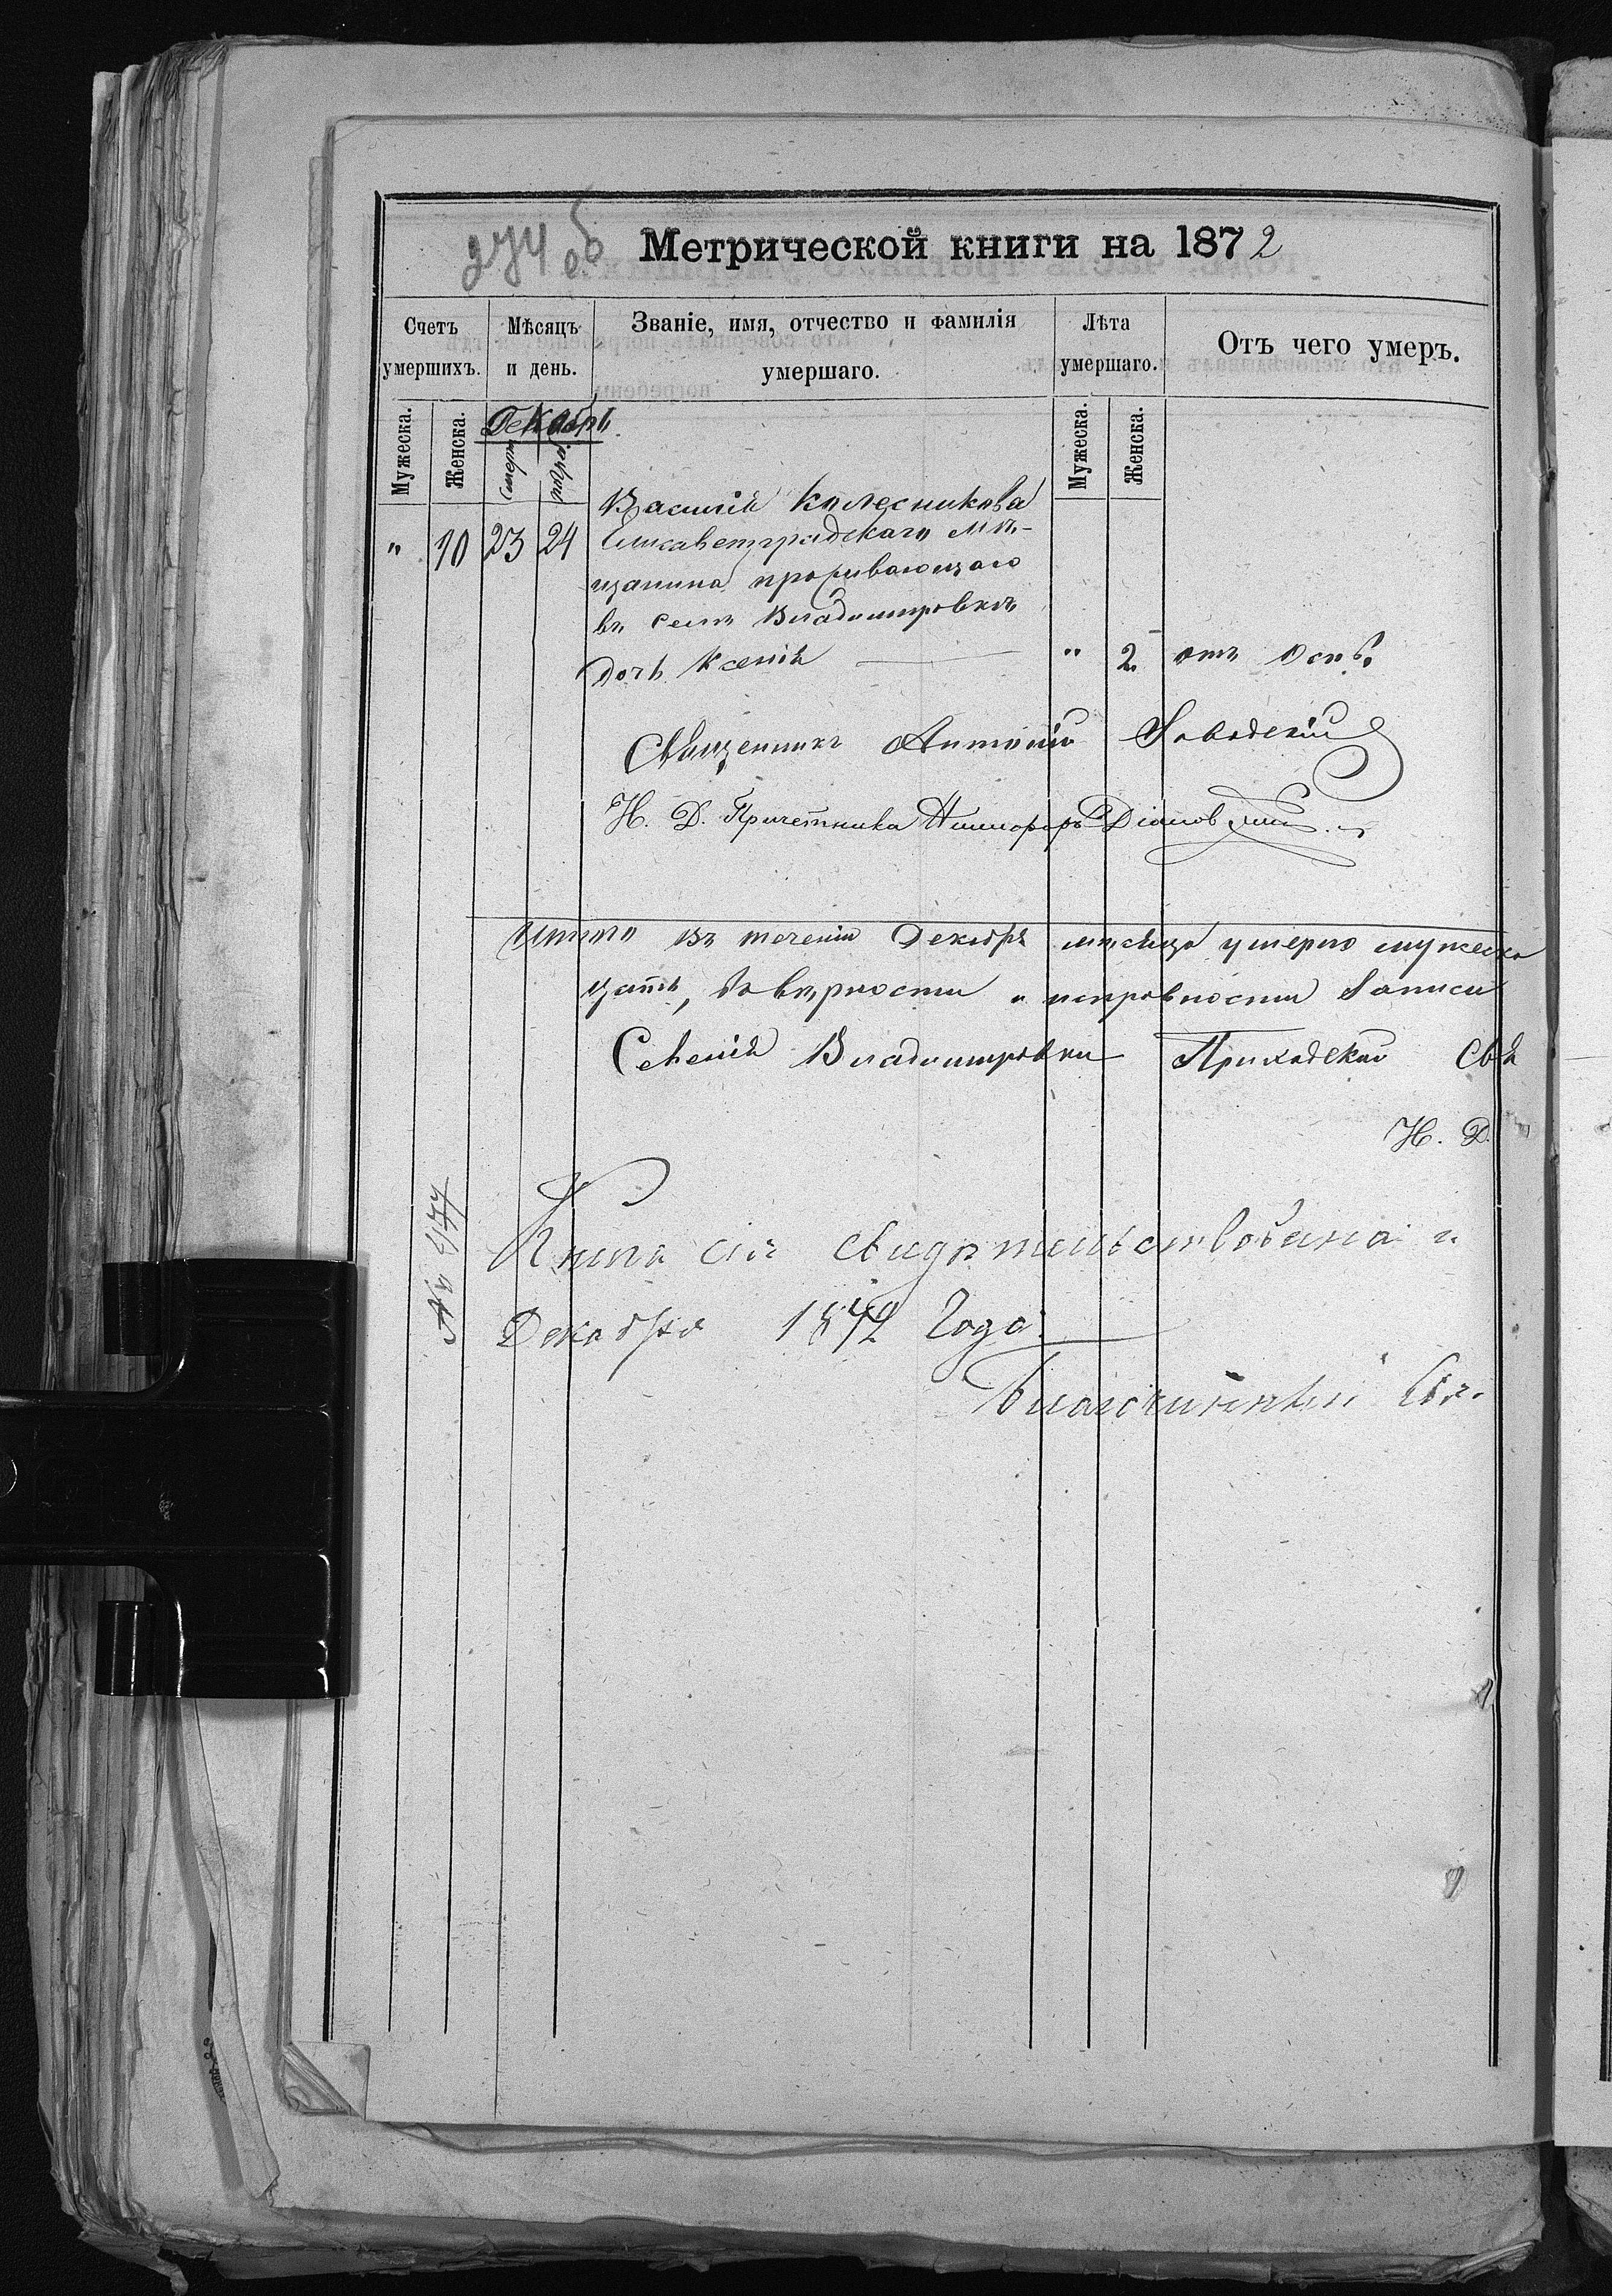 274 об
Метрической книги на 1872
Счетъ умершихъ.
Мѣсяцъ и день.
Званіе, имя, отчество и фамилія умершаго.
Лѣта умершаго.
Отъ чего умеръ.
Мужеска.
Женска.
Декабрь
смерт
погреб
Мужеска.
Женска.
Василія Колесникова
" 10 23 24 Елисаветградскаго мѣ-
щанина проживающаго
въ селѣ Владимировкѣ
дочь Ксенія — " 2 отъ оспы
Священникъ Антоній Заводскій
И. Д. Причетника Никифоръ
Итого въ теченіи Декабря мѣсяца умерло мужеска
цать, въ вѣрности и исправности записи
Селенія Владимировки Приходской Свя
И. Д.
№ 477
Книга сія свидѣтельствована
Декабря 1872 Года.
Благочинный Св.